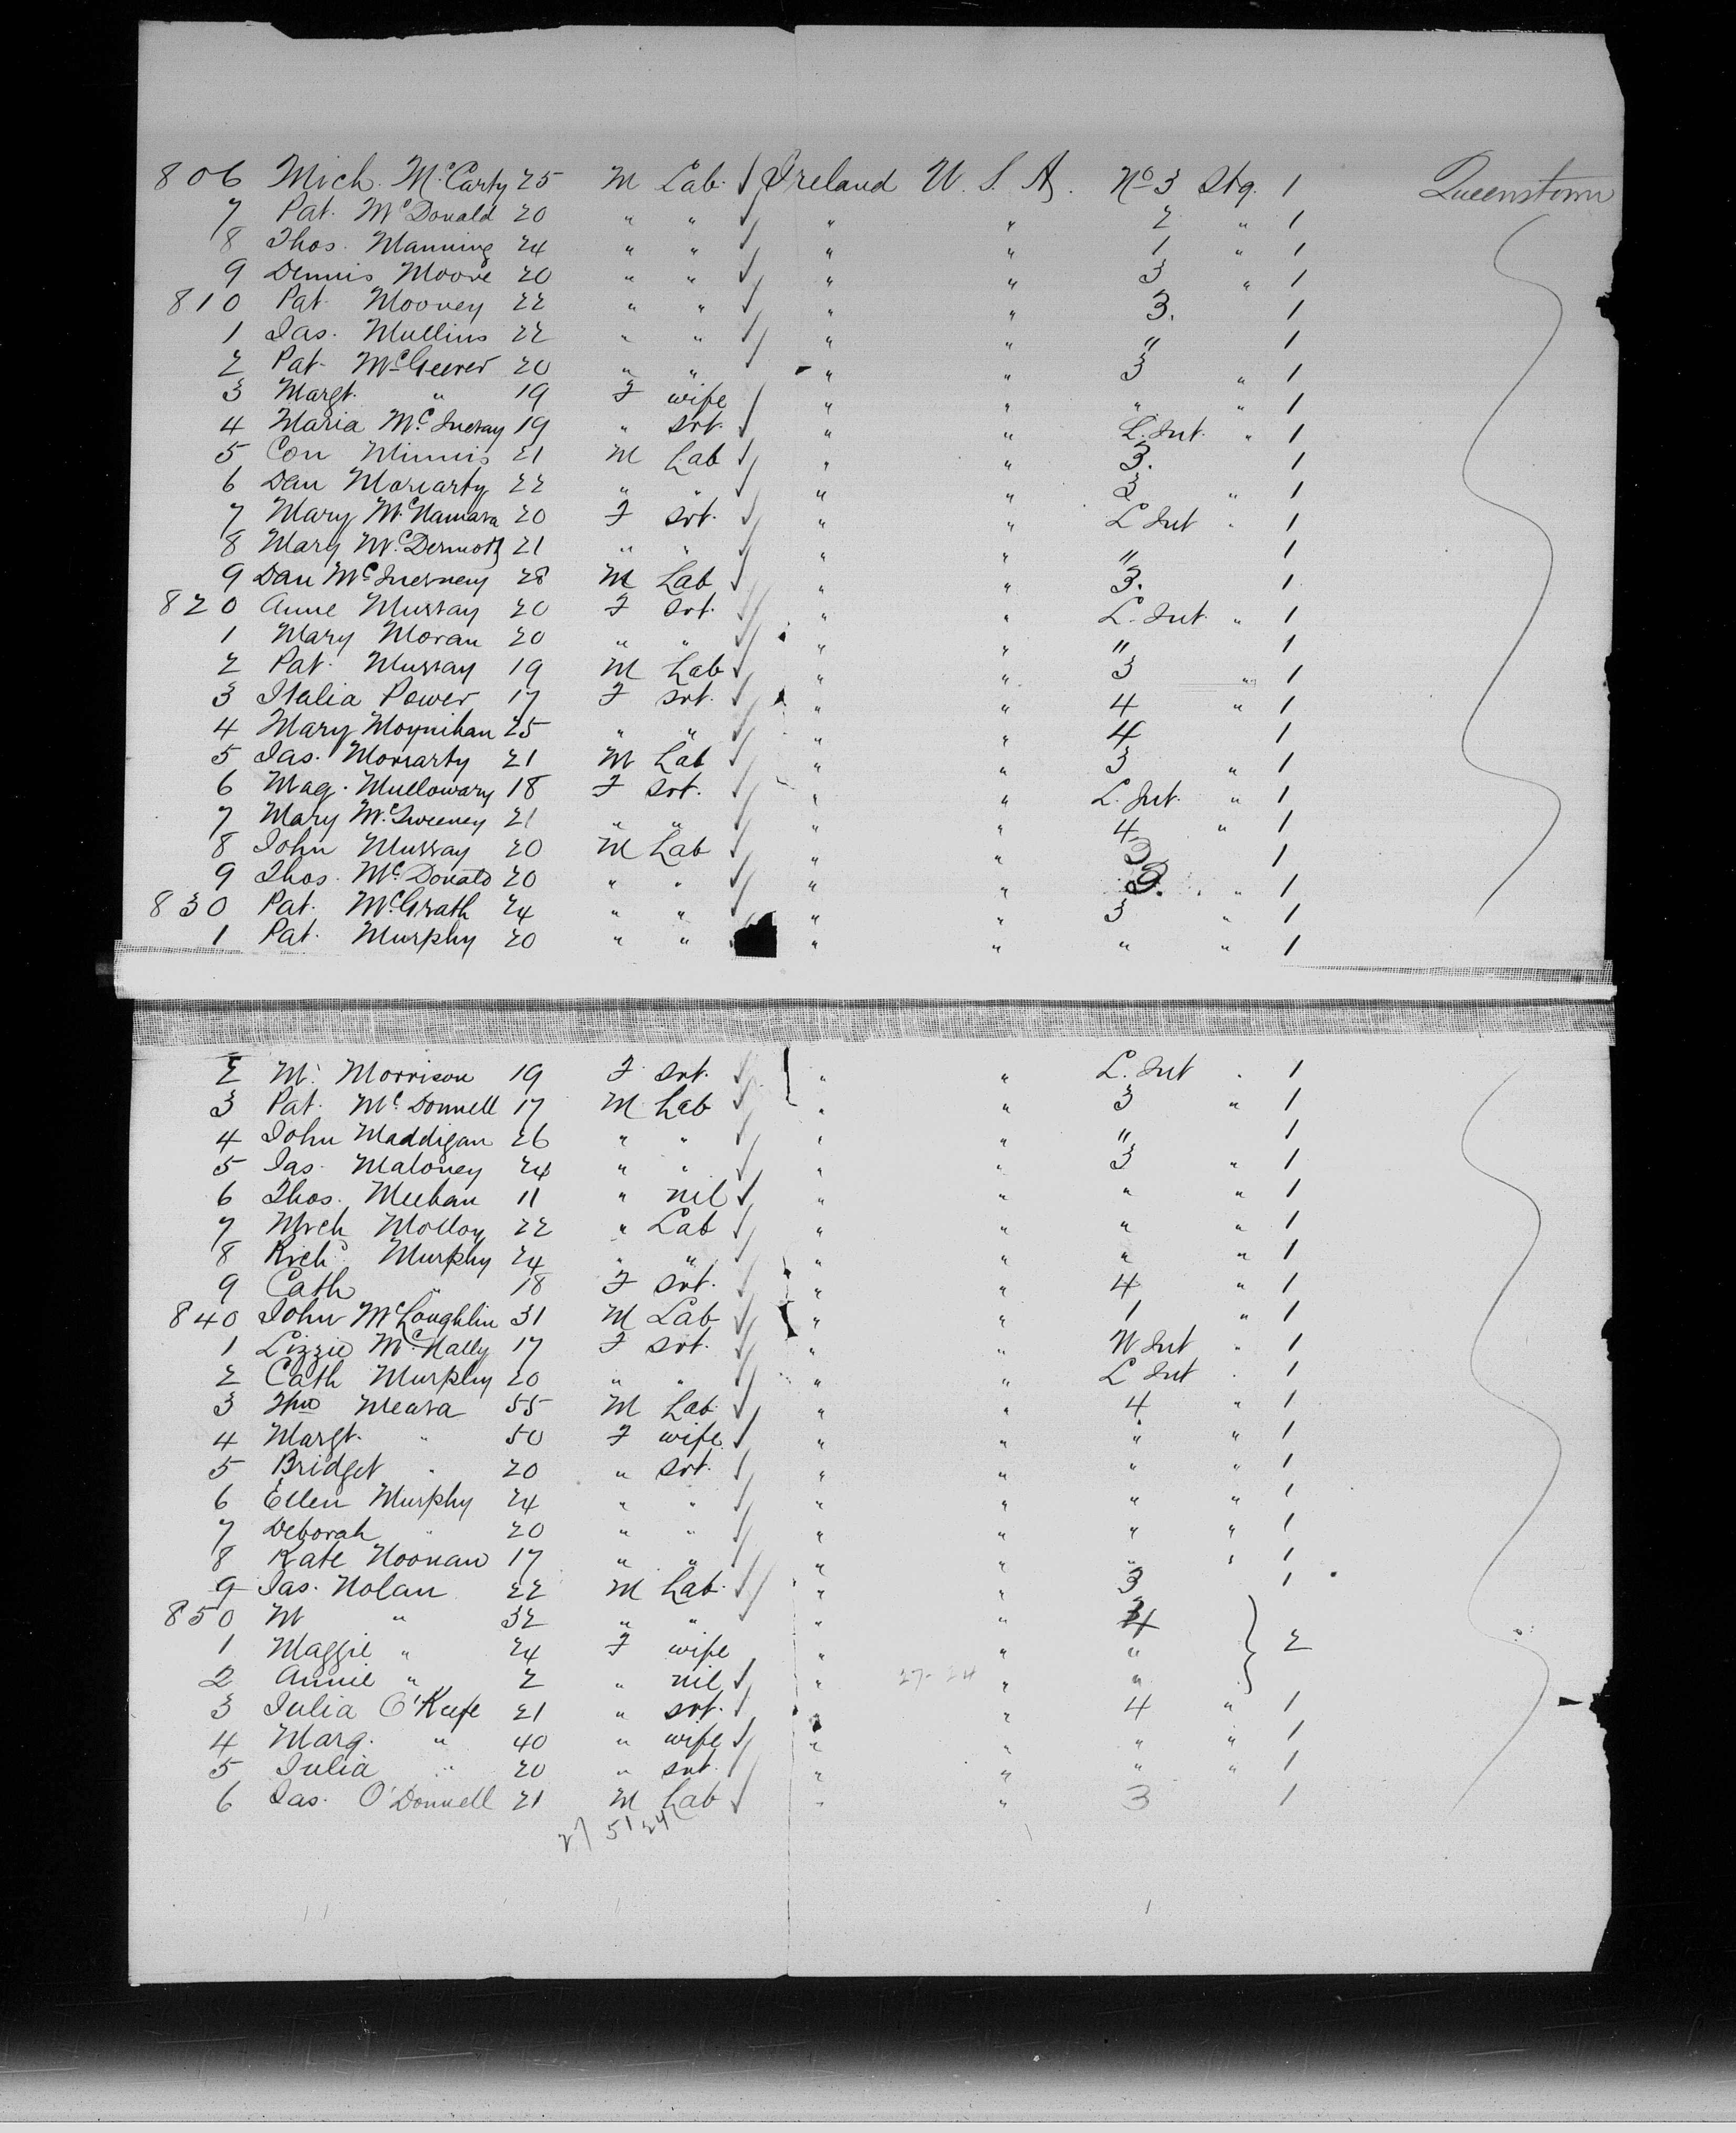 806 Mich. McCarty 25 M Lab. Ireland U. S. A. No 3 Stg. 1 Queenstown
7 Pat. McDonald 20 " " " " 2 " 1
8 Thos. Manning 24 " " " " 1 " 1
9 Dennis Moore 20 " " " " 3 " 1
810 Pat. Mooney 22 " " " " 3. 1
1 Jas. Mullins 22 " " " " " 1
2 Pat. McGeever 20 " " " " 3 " 1
3 Margt. " 19 F wife " " " " 1
4 Maria 19 " svt. " " L. Int. " 1
5 Con Minnis 21 M Lab " " 3. 1
6 Dan Moriarty 22 " " " " 3 " 1
7 Mary McNamara 20 F svt. " " L Int " 1
8 Mary McDermott 21 " " " " " 1
9 Dan McInerney 28 M Lab " " 3. 1
820 Anne Murray 20 F svt. " " L. Int. " 1
1 Mary Moran 20 " " " " " 1
2 Pat. Murray 19 M Lab " " 3 " 1
3 Italia Power 17 F svt. " " 4 " 1
4 Mary Moynihan 25 " " " " 4 1
5 Jas. Moriarty 21 M Lab " " 3 " 1
6 Mag. Mullowary 18 F svt. " " L. Int. " 1
7 Mary McSweeney 21 " " " " 4 " 1
8 John Murray 20 M Lab " " 3 1
9 Thos. McDonald 20 " " " " 3. " 1
830 Pat. McGrath 24 " " " " 3 " 1
1 Pat. Murphy 20 " " " " " " 1
2 M. Morrison 19 F svt. " " L. Int " 1
3 Pat. McDonnell 17 M Lab " " 3 " 1
4 John Maddigan 26 " " " " " 1
5 Jas. Maloney 24 " " " " 3 " 1
6 Thos. Meehan 11 " nil " " " " 1
7 Mich Molloy 22 " Lab " " " " 1
8 Richd Murphy 24 " " " " " " 1
9 Cath " 18 F svt. " " 4 " 1
840 John McLoughlin 31 M Lab " " 1 " 1
1 Lizzie McNally 17 F svt. " " W Int " 1
2 Cath Murphy 20 " " " " L Int " 1
3 Wm Meara 55 M Lab. " " 4 " 1
4 Margt. " 50 F wife " " " " 1
5 Bridget " 20 " svt. " " " " 1
6 Ellen Murphy 24 " " " " " " 1
7 Deborah " 20 " " " " " " 1
8 Kate Noonan 17 " " " " " " 1
9 Jas. Nolan 22 M Lab. " " 3 1
850 M " 32 " " " " 4
1 Maggie " 24 F wife " " " 2
2 Annie " 2 " nil " 27-24 " "
3 Julia O'Keefe 21 " svt. " " 4 " 1
4 Marg. " 40 " wife " " " " 1
5 Julia " 20 " svt. " " " " 1
6 Jas. O'Donnell 21 M Lab " " 3 1
27 51 24